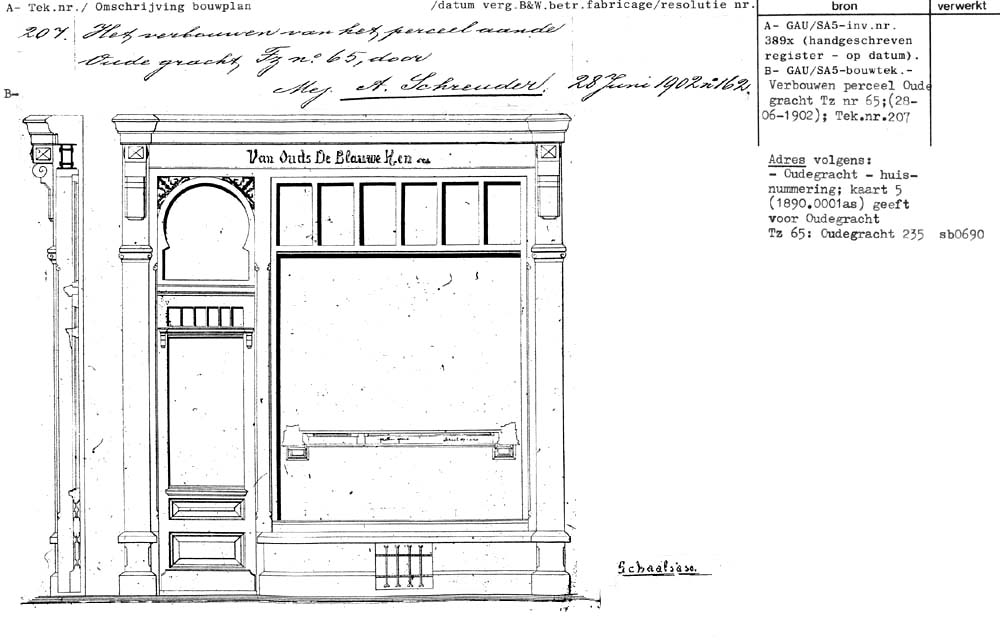 A- Tek.nr./ Omschrijving bouwplan /datum verg.B&W.betr.fabricage/resolutie nr.
bron verwerkt
207. Het verbouwen van het perceel aan de
Oude gracht, Tz no 65, door
Mej. A. Schreuder. 28 Juni 1902 no 162.
A- GAU/SA5-inv.nr.
389x (handgeschreven
register - op datum).
B- GAU/SA5-bouwtek.-
Verbouwen perceel Oude
gracht Tz nr 65;(28-
06-1902); Tek.nr.207
B-
Adres volgens:
- Oudegracht - huis-
nummering; kaart 5
(1890.0001as) geeft
voor Oudegracht
Tz 65: Oudegracht 235 sb0690
Van Ouds De Blauwe